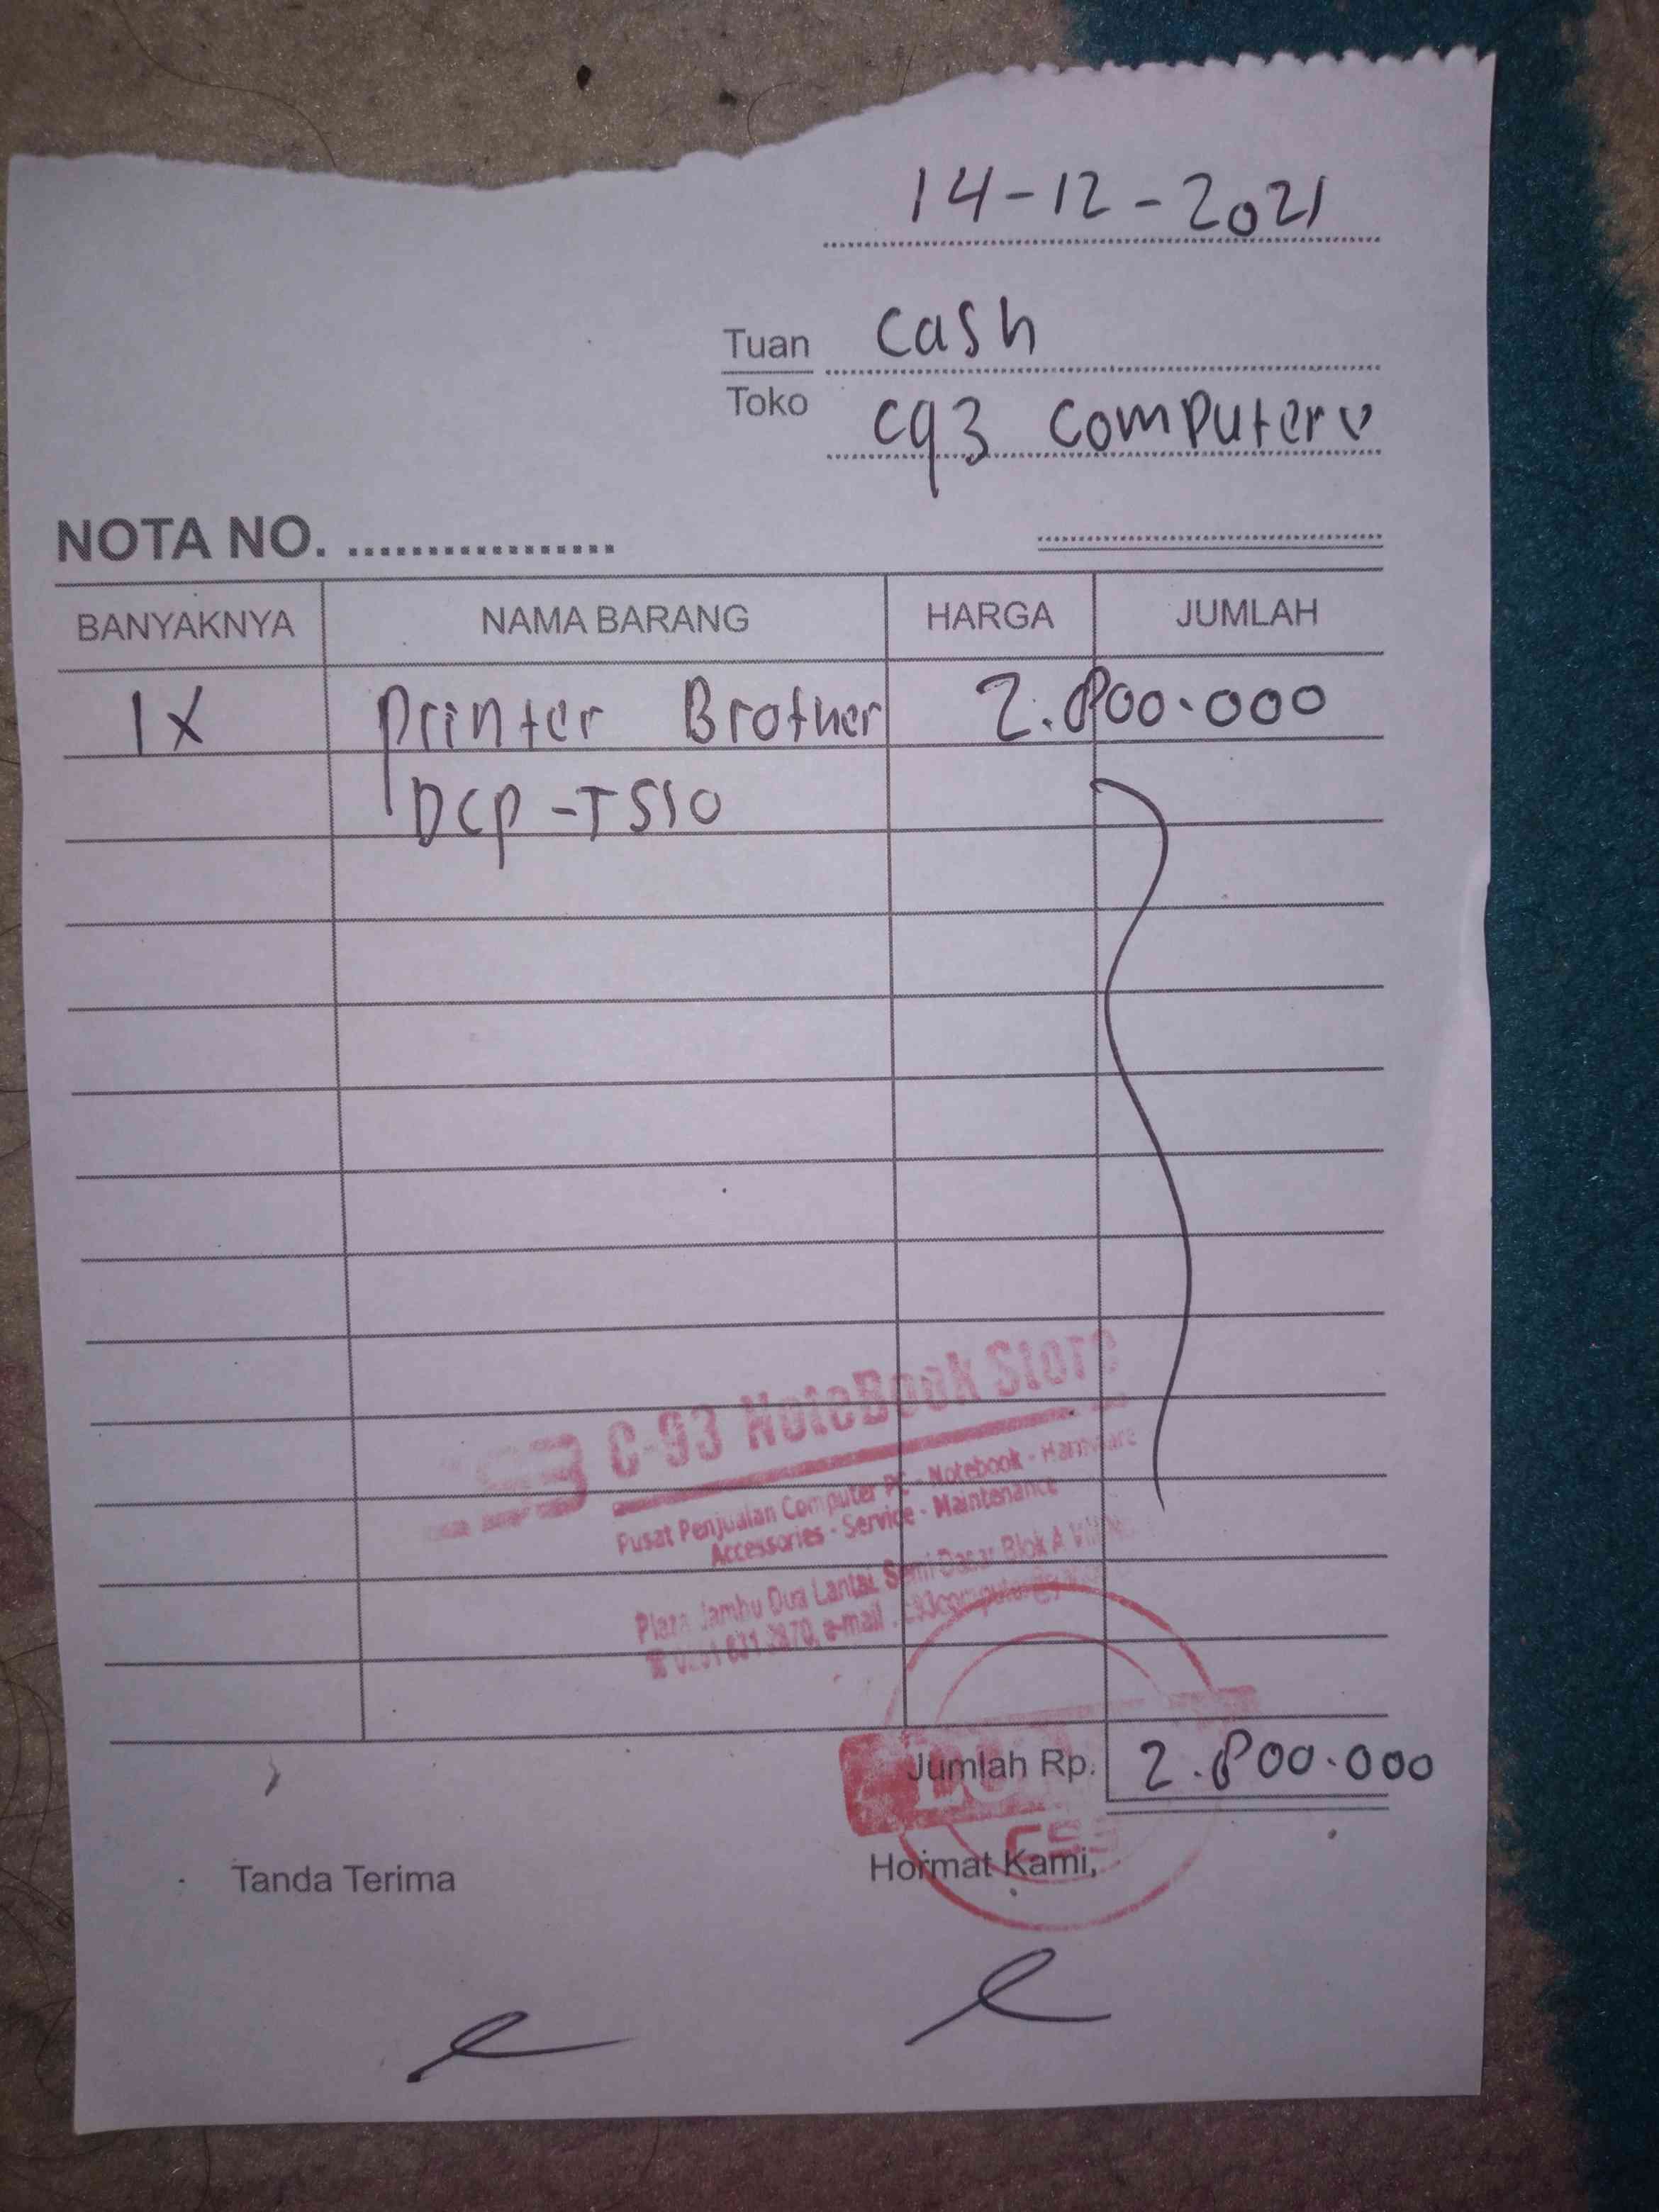 14-12-2021
Tuan cash
Toko c93 computer
NOTA NO. .................
BANYAKNYA NAMA BARANG HARGA JUMLAH
1X Printer Brother 2.800.000
DCP-T510
C-93 NoteBook Store
Pusat Penjualan Computer PC - Notebook - Hardware
Accessories - Service - Maintenance
Plaza Jambu Dua Lantai Semi Dasar Blok A
e-mail
Jumlah Rp. 2.800.000
C93
Tanda Terima Hormat Kami,